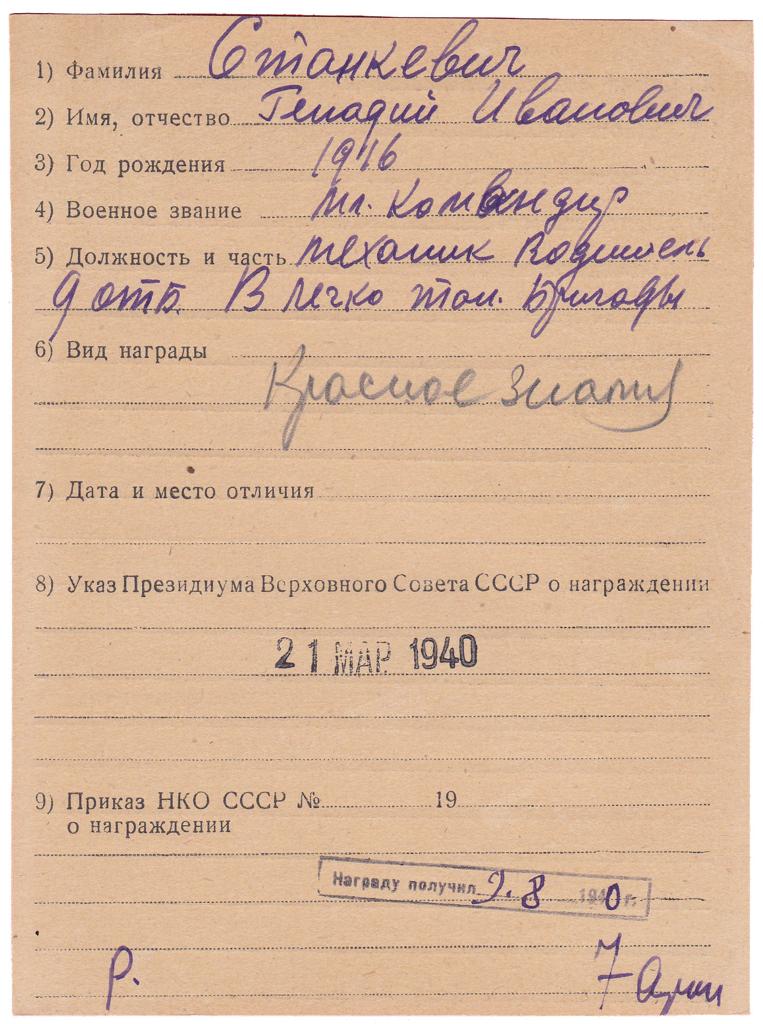 1) Фамилия Станкевич
2) Имя, отчество Генадий Иванович
3) Год рождения 1916
4) Военное звание мл. командир
5) Должность и часть механик водитель
9 отб. В легко тан. бригады
6) Вид награды
Красное знамя
7) Дата и место отличия
8) Указ Президиума Верховного Совета СССР о награждении
21 МАР 1940
9) Приказ НКО СССР № 19
о награждении
Награду получил 9.8 1940 г.
Р. 7 Арм